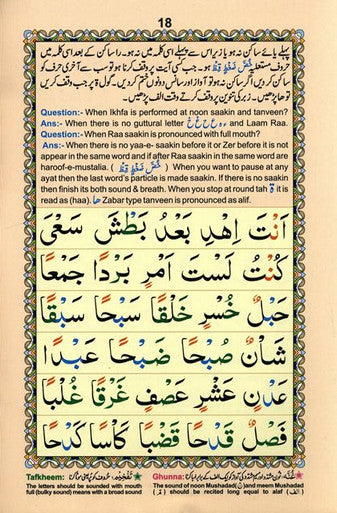 18
پہلے یائے ساکن نہ ہو یا زیر اس سے پہلے اسی کلمہ میں نہ ہو۔ را ساکن کے بعد اسی کلمہ میں
حروف مستعلیہ خُصَّ ضَغْطٍ قِظْ نہ ہو۔ جب کسی آیت پر وقف کرنا ہو تو سب سے آخری حرف کو
ساکن کر دیں اگر ساکن نہ ہو تو آواز اور سانس دونوں ختم کر دیں۔ گول ۃ پر جب وقف کریں
تو ھا پڑھیں۔ زبر کی تنوین پر وقف کرتے وقت الف پڑھیں۔
Question:- When Ikhfa is performed at noon saakin and tanveen?
Ans:- When there is no guttural letter ء ہ ع ح غ خ and Laam Raa.
Question:- When Raa saakin is pronounced with full mouth?
Ans:- When there is no yaa-e- saakin before it or Zer before it is not
appear in the same word and if after Raa saakin in the same word are
haroof-e-mustalia. ( خُصَّ ضَغْطٍ قِظْ ) When you want to pause at any
ayat then the last word's particle is made saakin. If there is no saakin
then finish its both sound & breath. When you stop at round tah ة it is
read as (haa). ھا Zabar type tanveen is pronounced as alif.
اَنْتَ اِهْدِ بَعْدُ بَطْشَ سَعْیَ
كُنْتُ لَسْتَ اَمْرٍ بَرْدًا جَمْعًا
حَبْلٌ خُسْرٍ خَلْقًا سَبْحًا سَبْقًا
شَاْنٌ صُبْحًا ضَبْحًا عَبْدًا
عَدْنٍ عَشْرٍ عَصْفٍ غَرْقًا غُلْبًا
فَصْلٌ قَدْحًا قَضْبًا كَاْسًا كَدْحًا
Tafkheem:
The letters should be sounded with mouth
full (bulky sound) means with a broad sound
Ghunna:
The sound of noon Mushadad(نّ)and meem Mushadad
(مّ) should be recited long equal to alaf (الف)